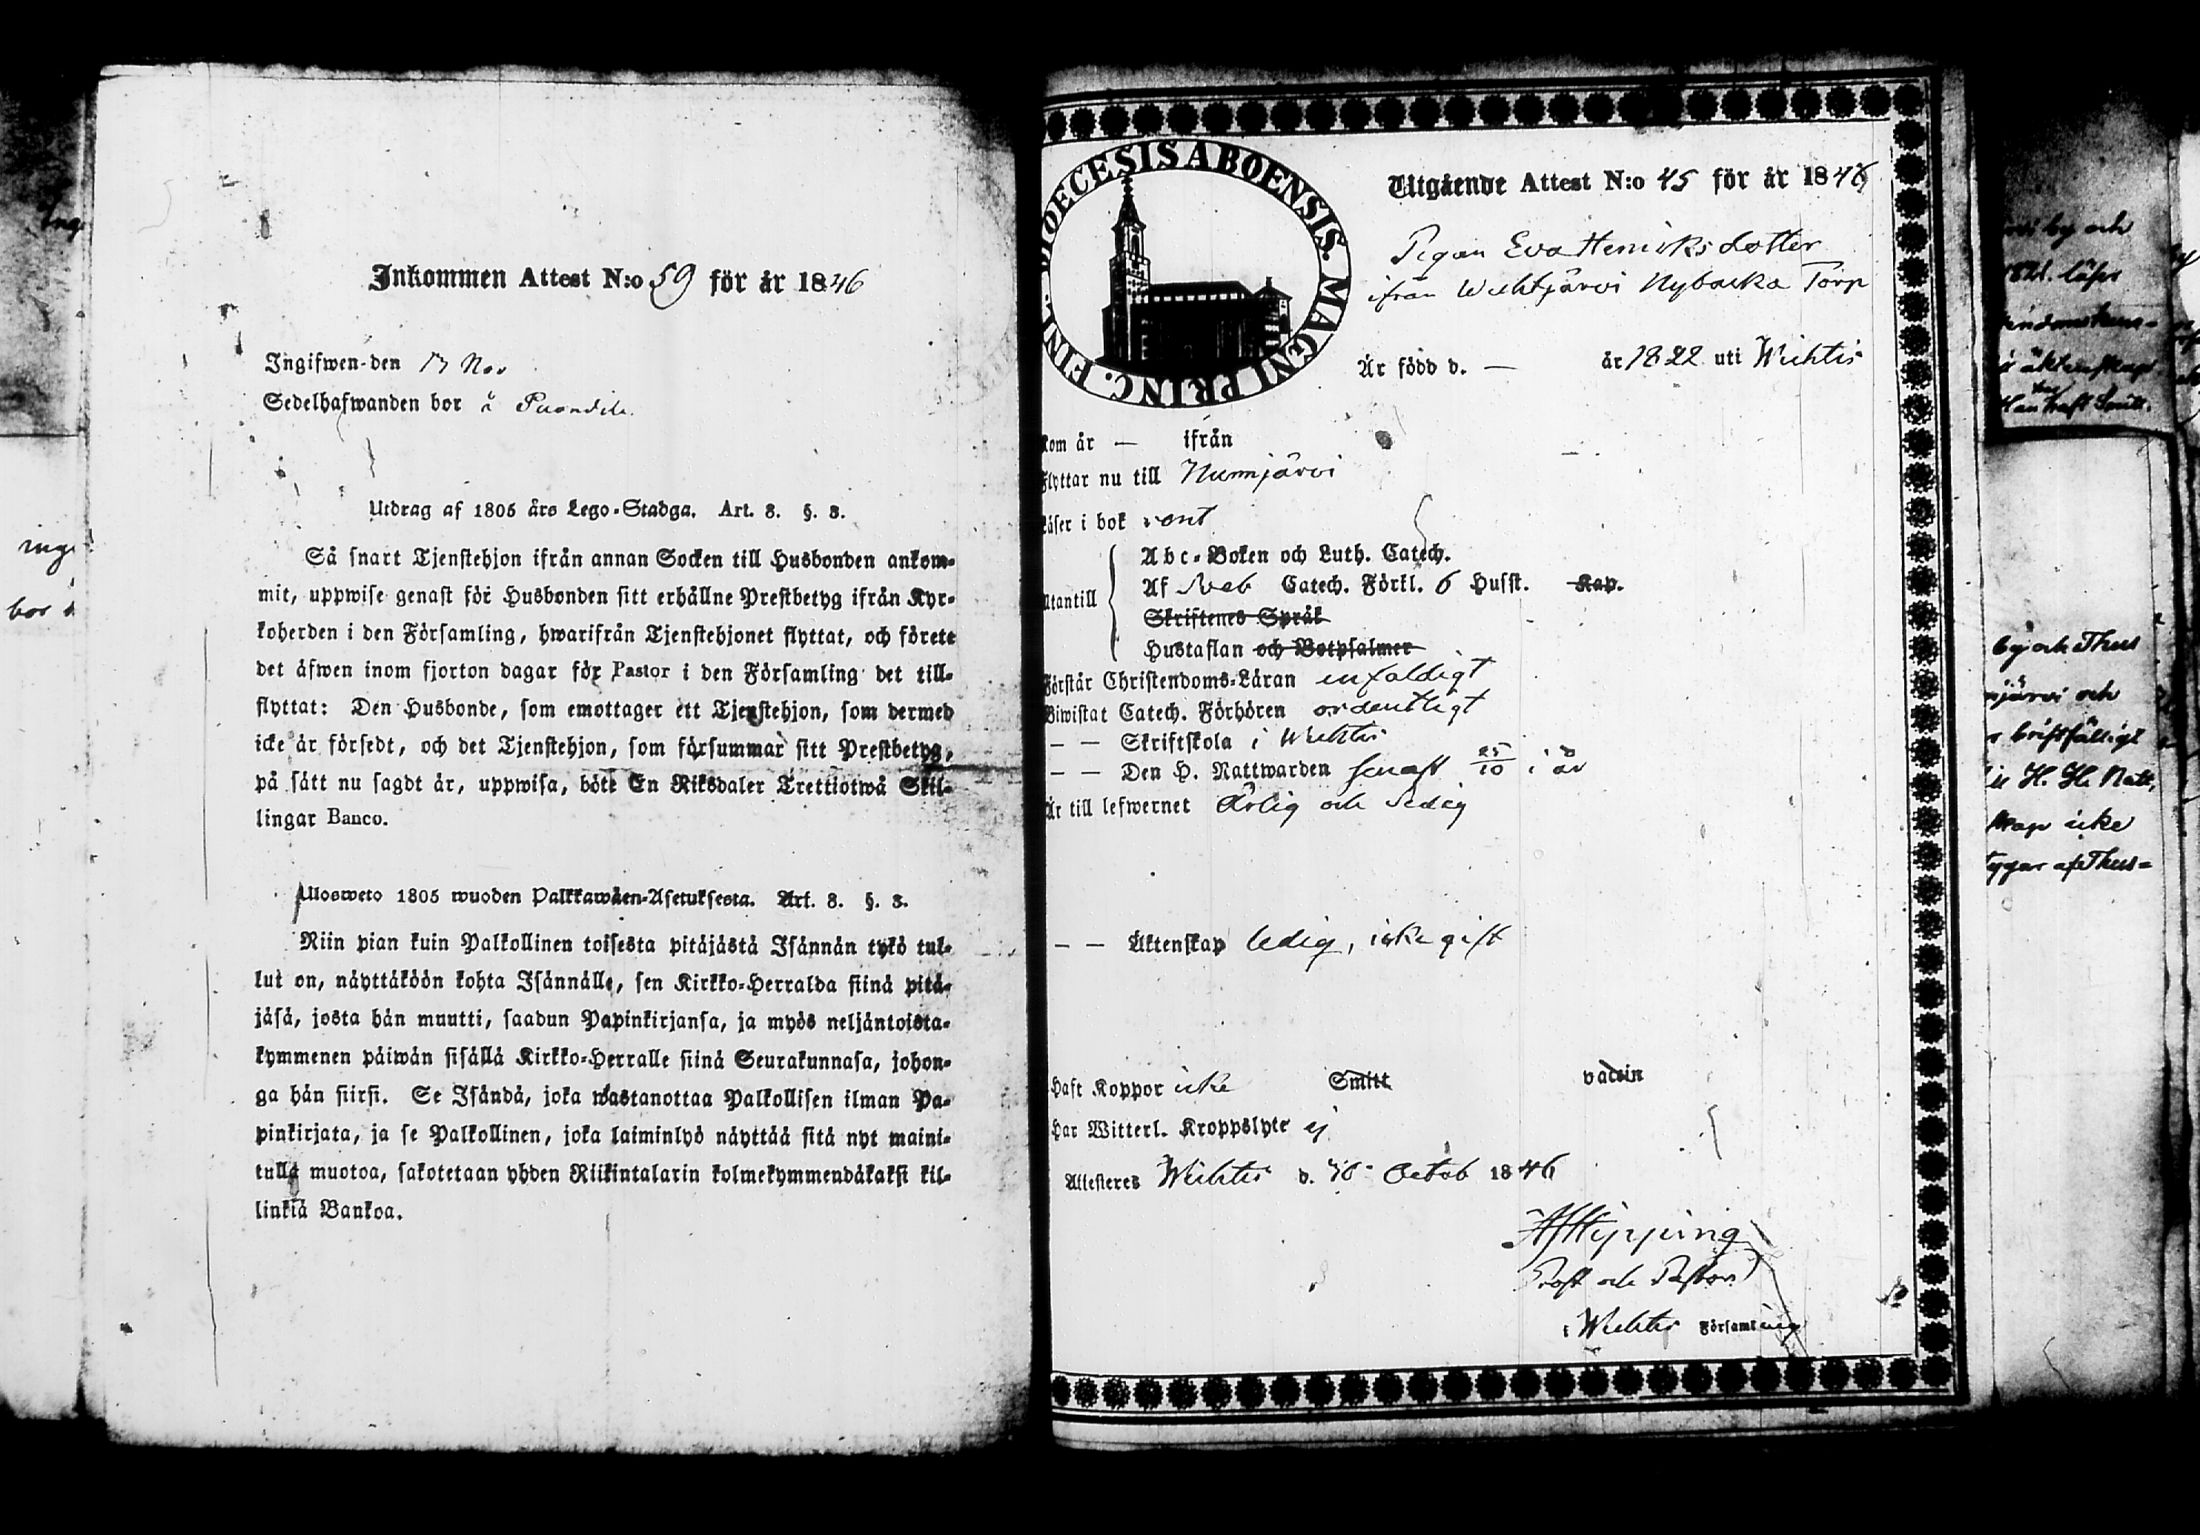 Inkommen Attest N:o 59 för år 1846
Ingifwen den 13 Nov
Sedelhafwanden bor å
Utdrag af 1805 års Lego-Stadga. Art. 8. §. 3.
Så snart Tjenstehjon ifrån annan Socken till Husbonden ankom-
mit, uppwise genast för Husbonden sitt erhållne Prestbetyg ifrån Kyr-
koherden i den Församling, hwarifrån Tjenstehjonet flyttat, och förete
det äfwen inom fjorton dagar för Pastor i den Församling det till-
flyttat: Den Husbonde, som emottager ett Tjenstehjon, som dermed
icke är försedt, och det Tjenstehjon, som försummar sitt Prestbetyg,
på sätt nu sagdt är, uppwisa, böte En Riksdaler Trettiotwå Skil-
lingar Banco.
Ulosweto 1805 wuoden Palkkawäen-Asetuksesta. Art. 8. §. 3.
Niin pian kuin Palkollinen toisesta pitäjästä Isännän tykö tul-
lut on, näyttäköön kohta Isännälle, sen Kirkko-Herralda siinä pitä-
jäsä, josta hän muutti, saadun Papinkirjansa, ja myös neljäntoista-
kymmenen päiwän sisällä Kirkko-Herralle siinä Seurakunnasa, johon-
ga hän siirsi. Se Isändä, joka wastanottaa Palkollisen ilman Pa-
pinkirjata, ja se Palkollinen, joka laiminlyö näyttää sitä nyt maini-
tulla muotoa, sakotetaan yhden Riikintalarin kolmekymmendäkaksi kil-
linkiä Bankoa.
DIOECESIS ABOENSIS. MAGNI PRINC. FINL.
Utgående Attest N:o 45 för år 1846
Pigan Eva Henriksdotter
ifrån Wichtjärvi Nybacka Torp
Är född d. — år 1822 uti Wichtis
kom år — ifrån
Flyttar nu till Nurmjärvi
Läser i bok rent
Utantill
Abc-Boken och Luth. Catech.
Af Sveb Catech. Förkl. 6 Husst. Kap.
Skriftenes Språk
Hustaflan och Botpsalmer
Förstår Christendoms-Läran enfaldigt
Biwistat Catech. Förhören ordentligt
— — Skriftskola i Wichtis
— — Den H. Nattwarden senast 25/10 i år
Är till lefwernet Ärlig och sedig
— — Äktenskap ledig, icke gift
Haft Koppor icke Smitt vaccin
Har Witterl. Kroppslyte ej
Attesteres Wichtis d. 30 Octob 1846
AFHipping
Prost och Pastor
i Wichtis Församling
by och
1821. läser
äktenskap
haft
by och Thus
järvi och
bristfälligt
H. H. Natt.
icke